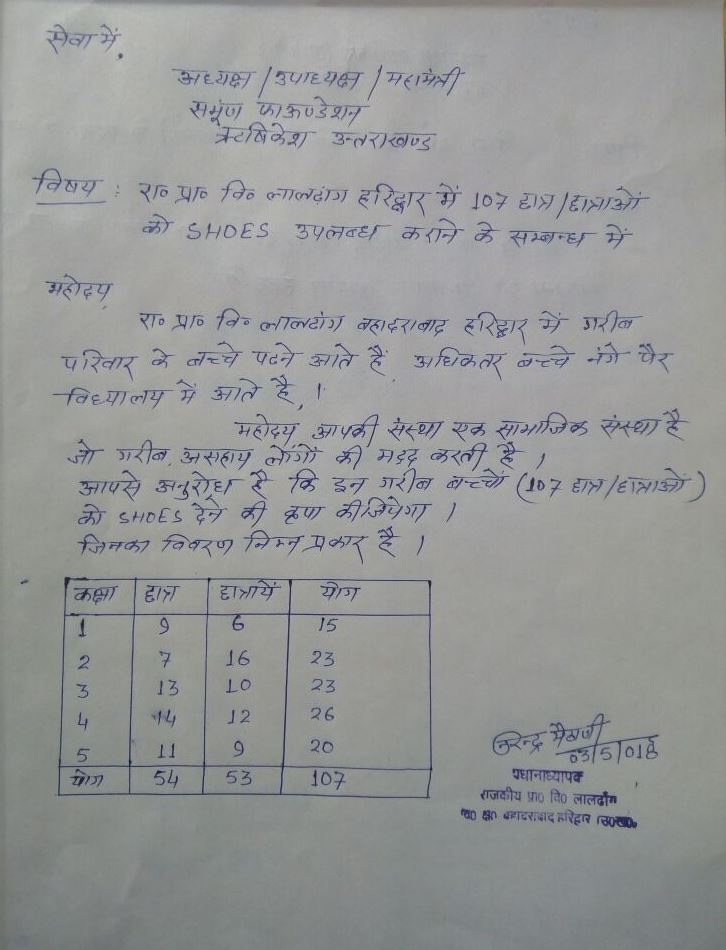 सेवा में,
अध्यक्ष / उपाध्यक्ष / महामंत्री
समूंण फाऊण्डेशन
ऋषिकेश उत्तराखण्ड
विषय : रा० प्रा० वि० लालढांग हरिद्वार में 107 छात्र / छात्राओं
को SHOES उपलब्ध कराने के सम्बन्ध में
महोदय,
रा० प्रा० वि० लालढांग बहादराबाद हरिद्वार में गरीब
परिवार के बच्चे पढने आते हैं, अधिकतर बच्चे नंगे पैर
विध्यालय में आते है, ।
महोदय, आपकी संस्था एक सामाजिक संस्था है
जो गरीब, असहाय लोगों की मदद करती है ।
आपसे अनुरोध है कि इन गरीब बच्चों (107 छात्र / छात्राओं)
को SHOES देने की कृपा कीजियेगा ।
जिनका विवरण निम्न प्रकार है ।
कक्षा छात्र छात्रायें योग
1 9 6 15
2 7 16 23
3 13 10 23
4 14 12 26
5 11 9 20
योग 54 53 107
नरेन्द्र मैठाणी
03/5/018
प्रधानाध्यापक
राजकीय प्रा० वि० लालढाँग
बहादराबाद हरिद्वार